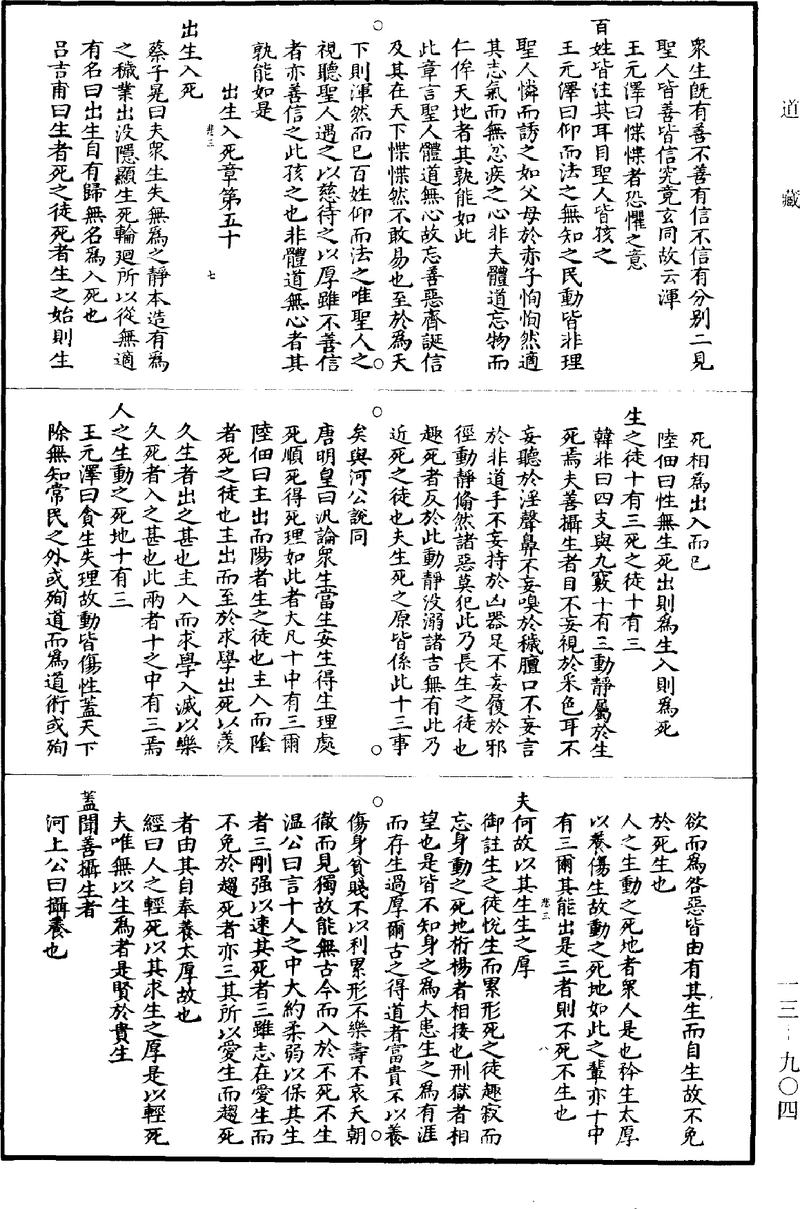 道藏
眾生既有善不善有信不信有分别二見
聖人皆善皆信究竟玄同故云渾
王元澤曰惵惵者恐懼之意
百姓皆注其耳目聖人皆孩之
王元澤曰仰而法之無知之民動皆非理
聖人憐而誘之如父母於赤子恂恂然適
其志氣而無忿疾之心非夫體道忘物而
仁侔天地者其孰能如此
此章言聖人體道無心故忘善惡齊誕信
及其在天下惵惵然不敢易也至於為天
下則渾然而已百姓仰而法之唯聖人之
視聽聖人遇之以慈待之以厚雖不善信
者亦善信之此孩之也非體道無心者其
孰能如是
出生入死章第五十
卷三
七
出生入死
蔡子晃曰夫眾生失無為之靜本造有為
之穢業出没隱顯生死輪廻所以從無適
有名曰出生自有歸無名為入死也
吕吉甫曰生者死之徒死者生之始則生
死相為出入而已
陸佃曰性無生死出則為生入則為死
生之徒十有三死之徒十有三
韓非曰四支與九竅十有三動靜屬於生
死焉夫善攝生者目不妄視於采色耳不
妄聽於淫聲鼻不妄嗅於穢膻口不妄言
於非道手不妄持於凶器足不妄履於邪
徑動靜翛然諸惡莫犯此乃長生之徒也
趣死者反於此動靜没溺諸吉無有此乃
近死之徒也夫生死之原皆係此十三事
矣與河公說同
唐明皇曰汎論眾生當生安生得生理處
死順死得死理如此者大凡十中有三爾
陸佃曰主出而陽者生之徒也主入而陰
者死之徒也主出而至於求學出死以羨
久生者出之甚也主入而求學入滅以樂
久死者入之甚也此兩者十之中有三焉
人之生動之死地十有三
王元澤曰貪生失理故動皆傷性蓋天下
除無知常民之外或殉道而為道術或殉
欲而為咎惡皆由有其生而自生故不免
於死生也
人之生動之死地者衆人是也矜生太厚
以養傷生故動之死地如此之輩亦十中
有三爾其能出是三者則不死不生也
卷三
八
夫何故以其生生之厚
御註生之徒悅生而累形死之徒趣寂而
忘身動之死地桁楊者相接也刑獄者相
望也是皆不知身之為大患生之為有涯
而存生過厚爾古之得道者富貴不以養
傷身貧賤不以利累形不樂壽不哀夭朝
徹而見獨故能無古今而入於不死不生
温公曰言十人之中大約柔弱以保其生
者三剛强以速其死者三雖志在愛生而
不免於趨死者亦三其所以愛生而趨死
者由其自奉養太厚故也
經曰人之輕死以其求生之厚是以輕死
夫唯無以生為者是賢於貴生
蓋聞善攝生者
河上公曰攝養也
一三－九〇四